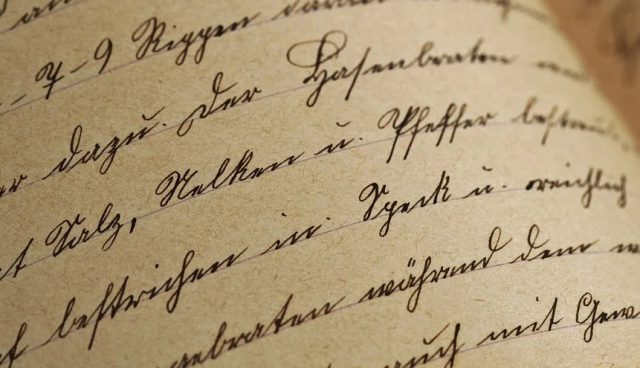 7-9 Rippen
dazu. Der Hasenbraten
Salz, Nelken u. Pfeffer
bestrichen in Speck u. reichlich
gebraten während dem
auch mit Gew